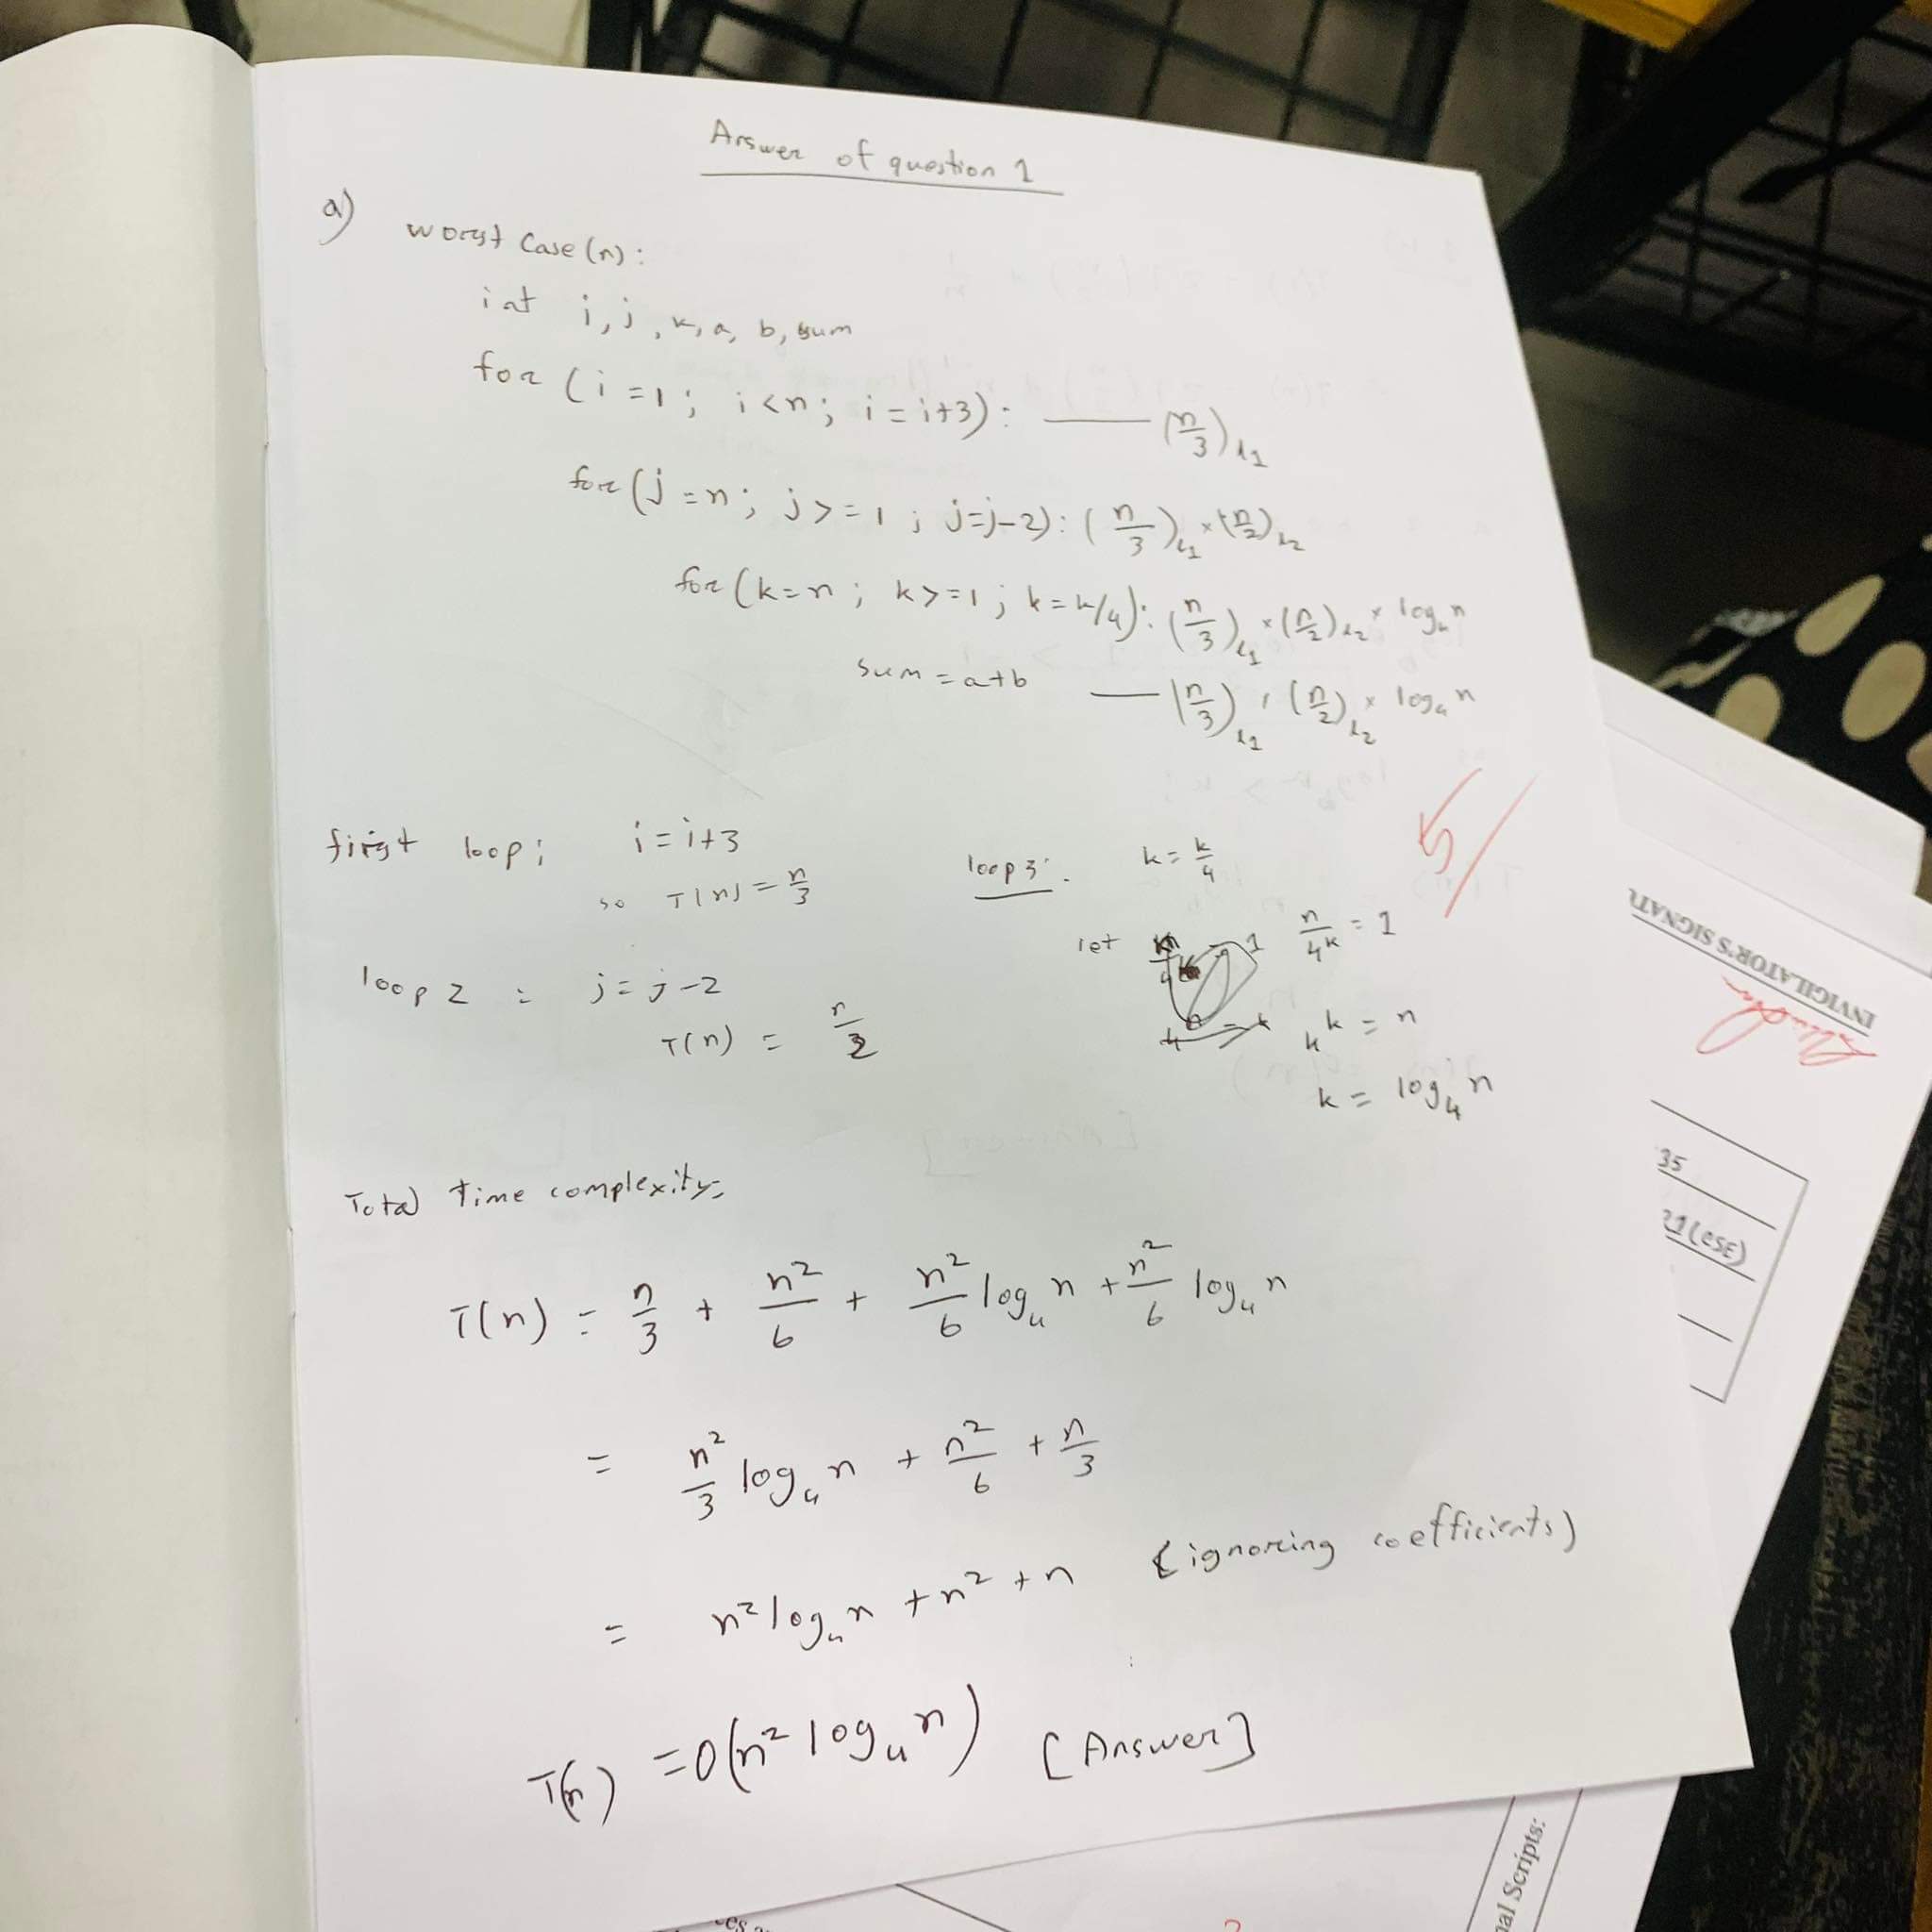 Answer of question 1
a)
worst Case (n):
int i, j, k, a, b, sum
for (i = 1; i < n; i = i+3): —— (n/3)L1
for (j = n; j >= 1; j=j-2): (n/3)L1 × (n/2)L2
for (k = n; k >= 1; k = k/4): (n/3)L1 × (n/2)L2 × log₄n
sum = a+b —— (n/3)L1 × (n/2)L2 × log₄n
5/
first loop; i = i+3
so T(n) = n/3
loop 2 : j = j-2
T(n) = n/2
loop 3: k = k/4
let n/4ᵏ = 1
4ᵏ = n
k = log₄n
Total time complexity,
T(n) = n/3 + n²/6 + n²/6 log₄n + n²/6 log₄n
= n²/3 log₄n + n²/6 + n/3
= n² log₄n + n² + n {ignoring coefficients)
T(n) = O(n² log₄n) [Answer]
INVIGILATOR'S SIGNATU
35
21(CSE)
nal Scripts: